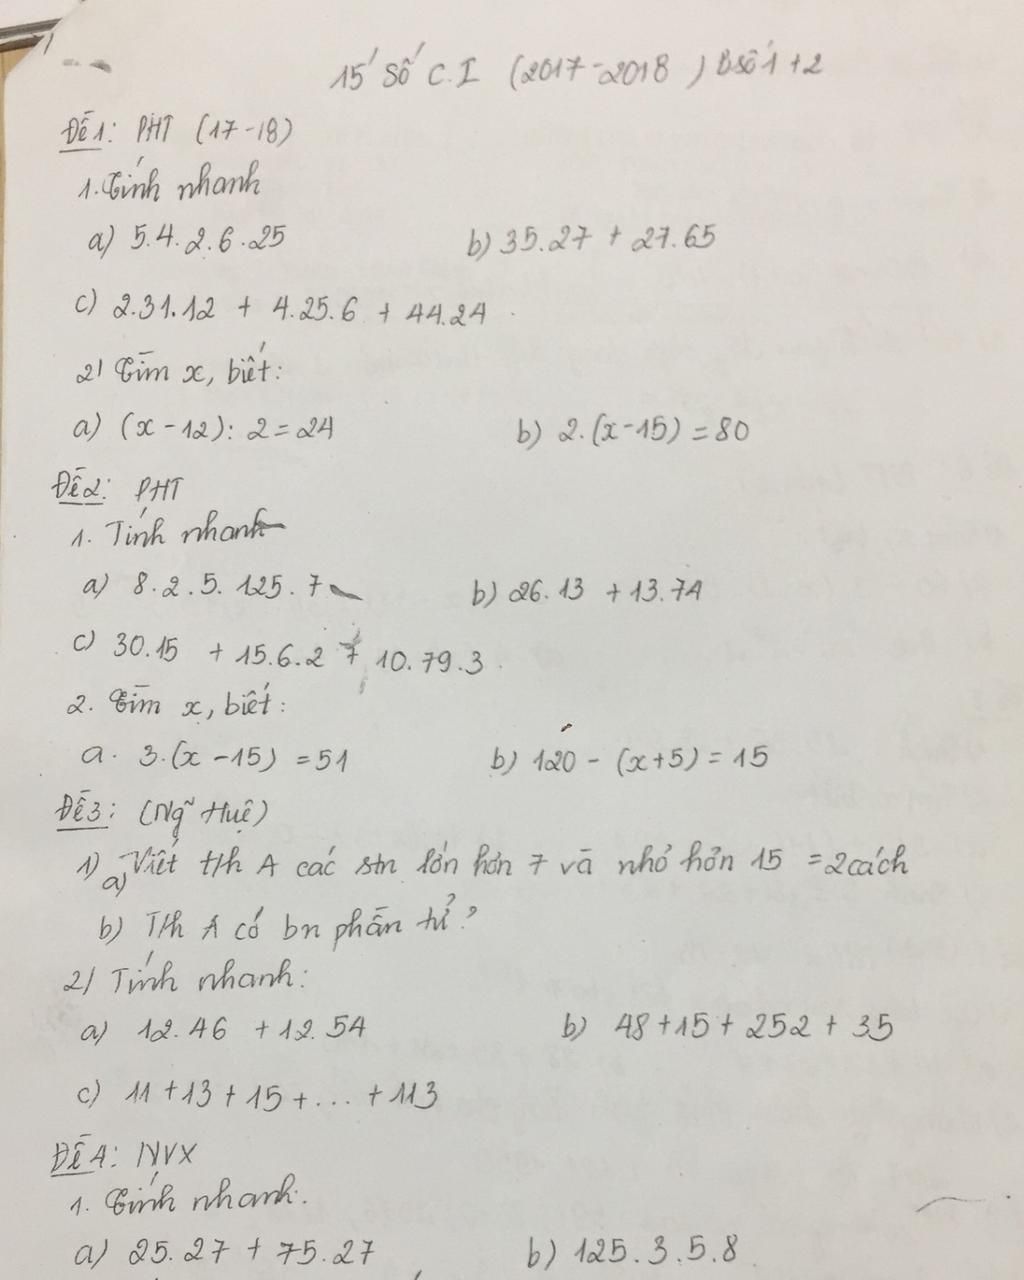 15' Số C.I (2017-2018) Bsố 1+2
Đề 1: PHT (17-18)
1. Tính nhanh
a) 5.4.2.6.25 b) 35.27 + 27.65
c) 2.31.12 + 4.25.6 + 44.24
2) Tìm x, biết:
a) (x-12): 2 = 24 b) 2.(x-15) = 80
Đề 2: PHT
1. Tính nhanh
a) 8.2.5.125.7 b) 26.13 + 13.74
c) 30.15 + 15.6.2 + 10.79.3
2. Tìm x, biết:
a. 3.(x-15) = 51 b) 120 - (x+5) = 15
Đề 3: (Ng~ Huệ)
1) a) Viết t/h A các stn lớn hơn 7 và nhỏ hơn 15 = 2 cách
b) T/h A có bn phần tử?
2) Tính nhanh:
a) 12.46 + 12.54 b) 48+15+252+35
c) 11+13+15+...+113
Đề 4: NVX
1. Tính nhanh.
a) 25.27 + 75.27 b) 125.3.5.8